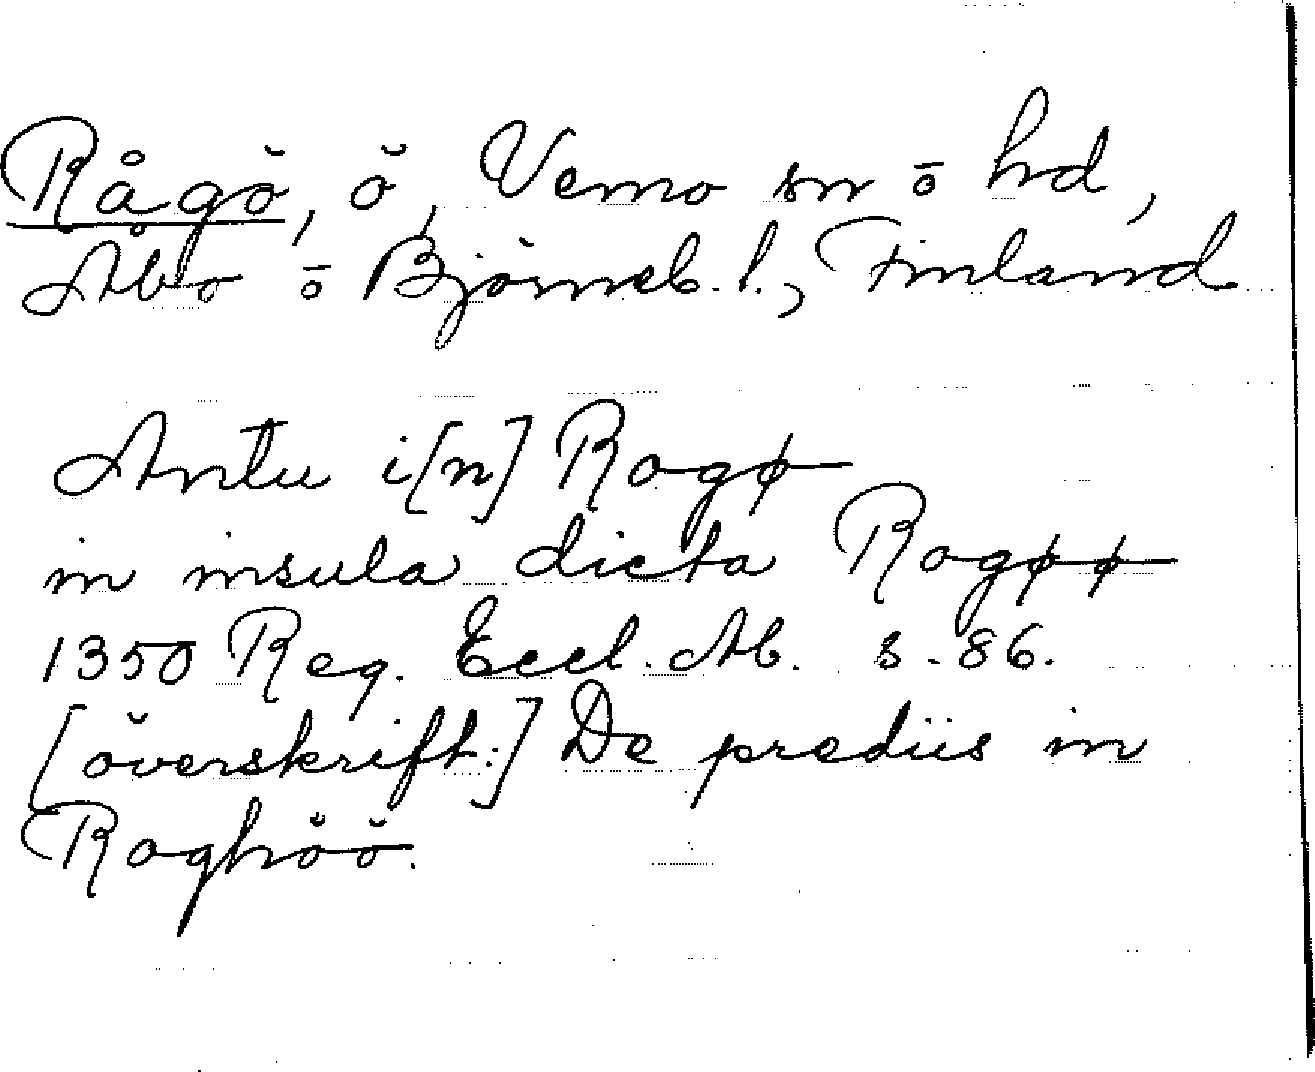 Rågö, ö, Vemo sn ō hd,
Åbo ō Björneb. l., Finland
Antu i[n] Rogø
in insula dicta Rogøø
1350 Reg. Eccl. Ab. s. 86.
[överskrift:] De prediis in
Roghöö.